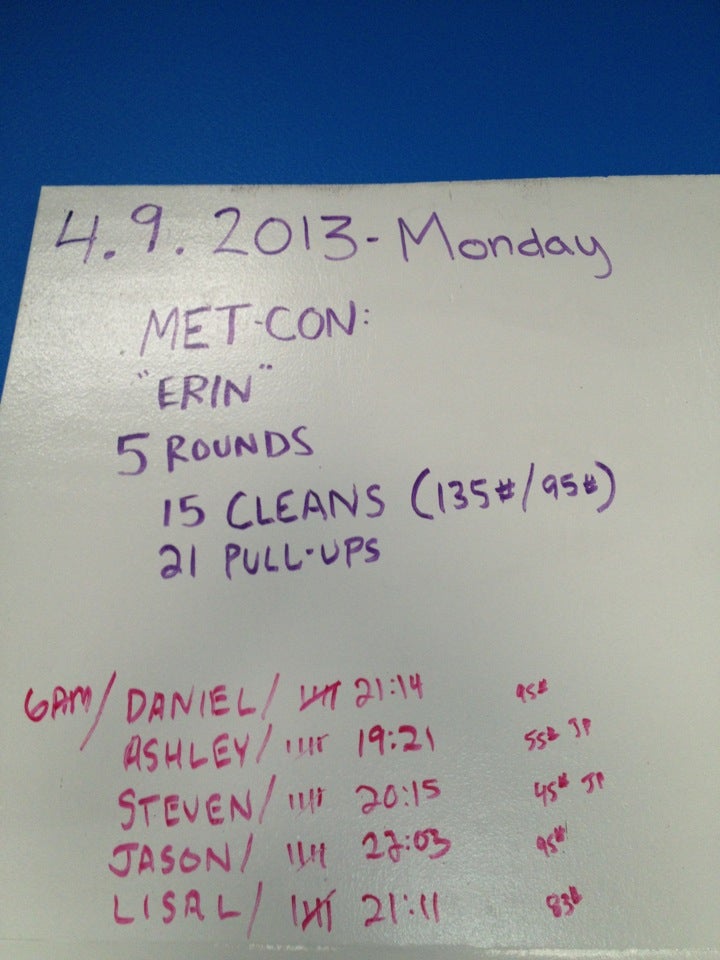 4.9.2013 - Monday
MET-CON:
"ERIN"
5 ROUNDS
15 CLEANS (135#/95#)
21 PULL-UPS
6AM/ DANIEL/ 21:14 95#
ASHLEY/ 19:21 55# JP
STEVEN/ 20:15 45# JP
JASON/ 95#
LISA L/ 21:11 83#